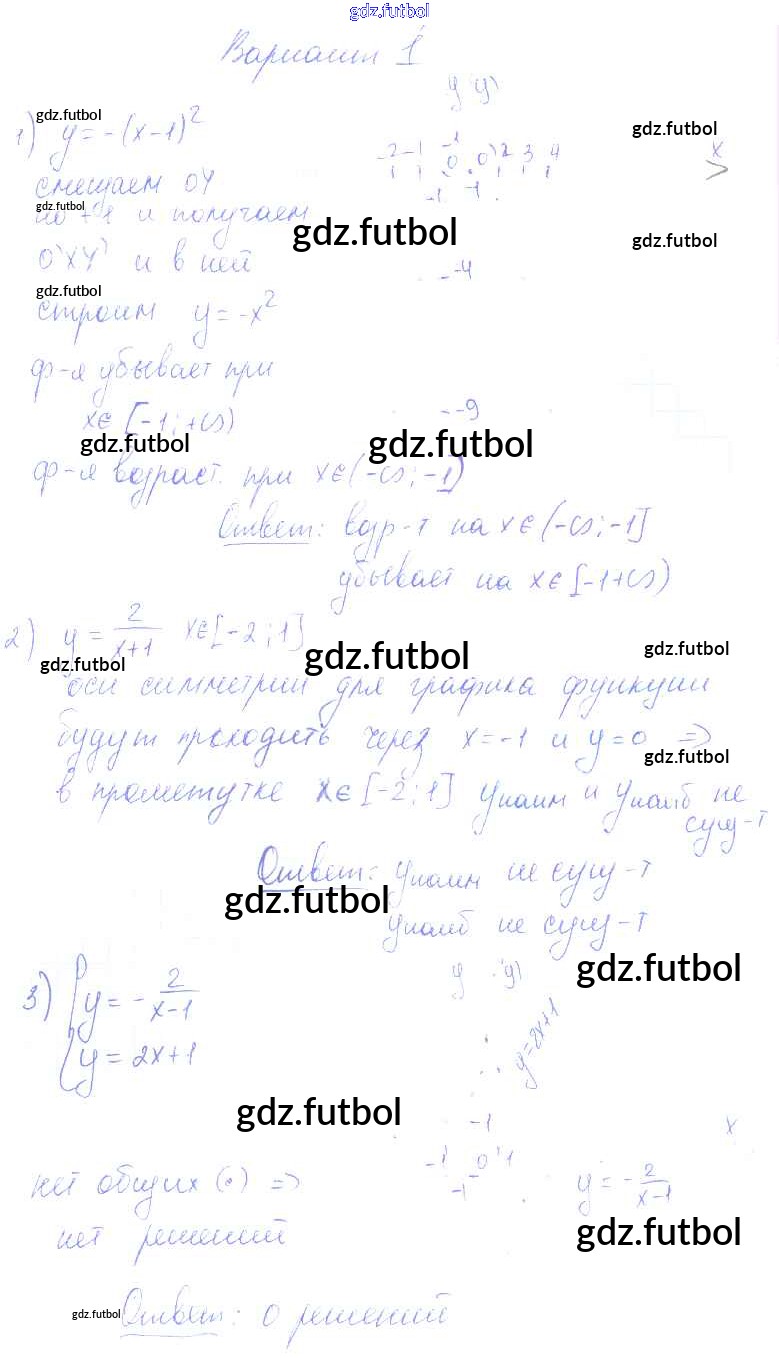 gdz.futbol
Вариант 1
y y)
gdz.futbol
1) y = -(x-1)²
gdz.futbol
-2 -1 -1 0 0' 2 3 4 x
смещаем OY
gdz.futbol
-1 -1
по +1 и получаем
gdz.futbol
gdz.futbol
O'XY' и в ней
-4
gdz.futbol
строим y = -x²
ф-я убывает при
x∈[-1; +∞)
-9
gdz.futbol
gdz.futbol
ф-я возраст. при x∈(-∞; -1)
Ответ: возр-т на x∈(-∞; -1]
убывает на x∈[-1+∞)
2) y = 2/(x+1) x∈[-2; 1]
gdz.futbol
gdz.futbol
gdz.futbol
оси симметрии для графика функции
будут проходить через x = -1 и y = 0 =>
gdz.futbol
в промежутке x∈[-2; 1] Yнаим и Yнаиб не
сущ-т
Ответ: Yнаим не сущ-т
gdz.futbol
Yнаиб не сущ-т
y y)
gdz.futbol
3) { y = - 2/(x-1)
y = 2x+1
y=2x+1
gdz.futbol
-1
x
-1 0 1
нет общих (•) =>
-1
y = - 2/(x-1)
нет решений
gdz.futbol
gdz.futbol
Ответ: 0 решений